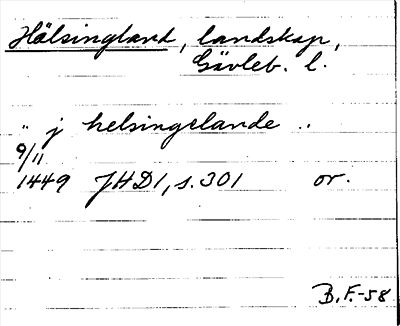 Hälsingland, landskap,
Gävleb. l.
.. j helsingelande ..
9/11
1449 JHD1, s. 301 or.
B.F.-58